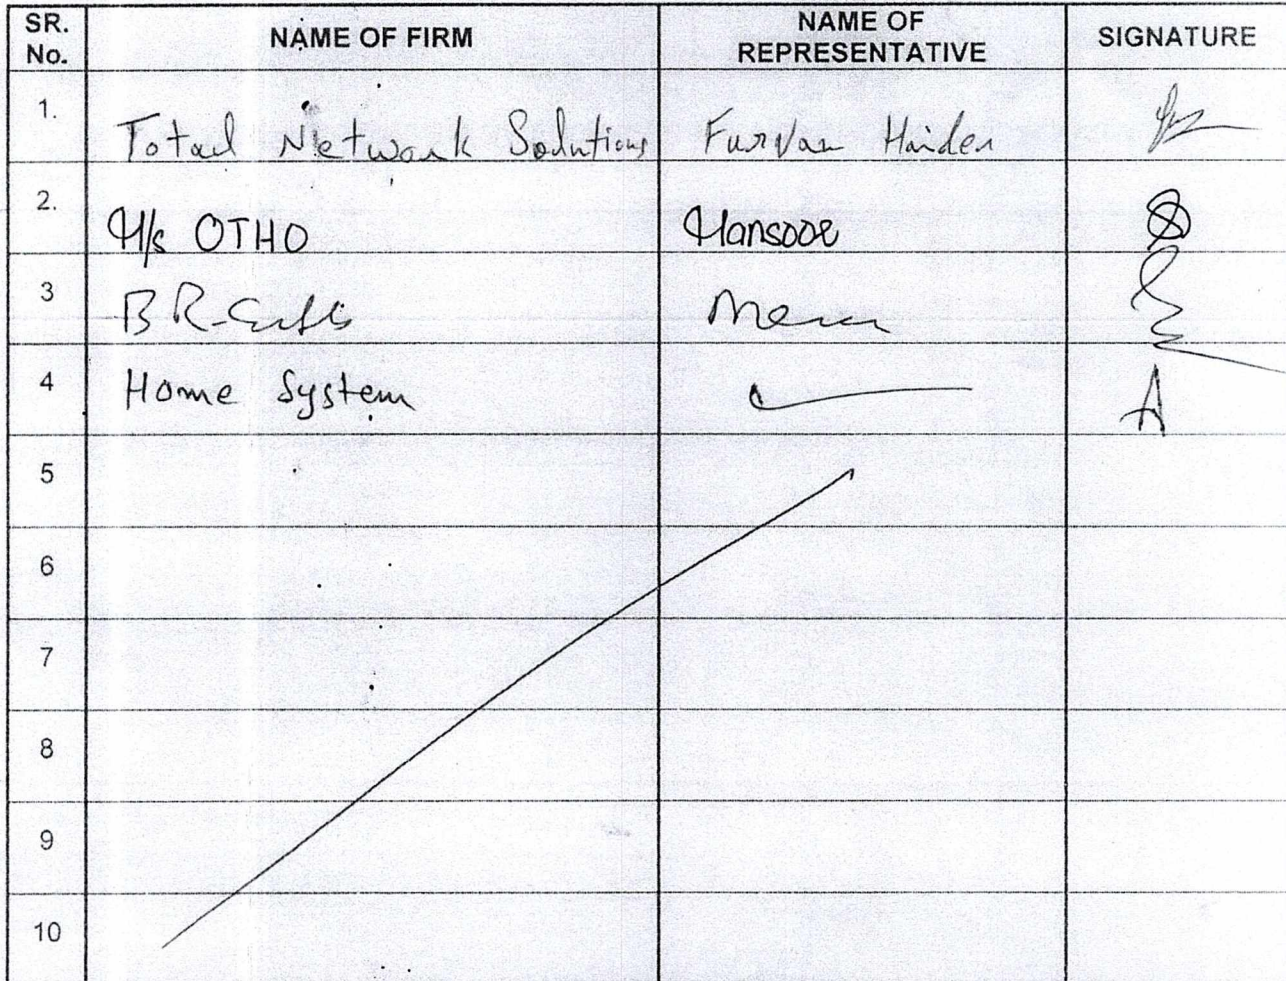 SR. No. NAME OF FIRM NAME OF REPRESENTATIVE SIGNATURE
1. Total Network Solutions Furvan Haider
2. M/s OTHO Mansoor
3 BR-
4 Home System
5
6
7
8
9
10